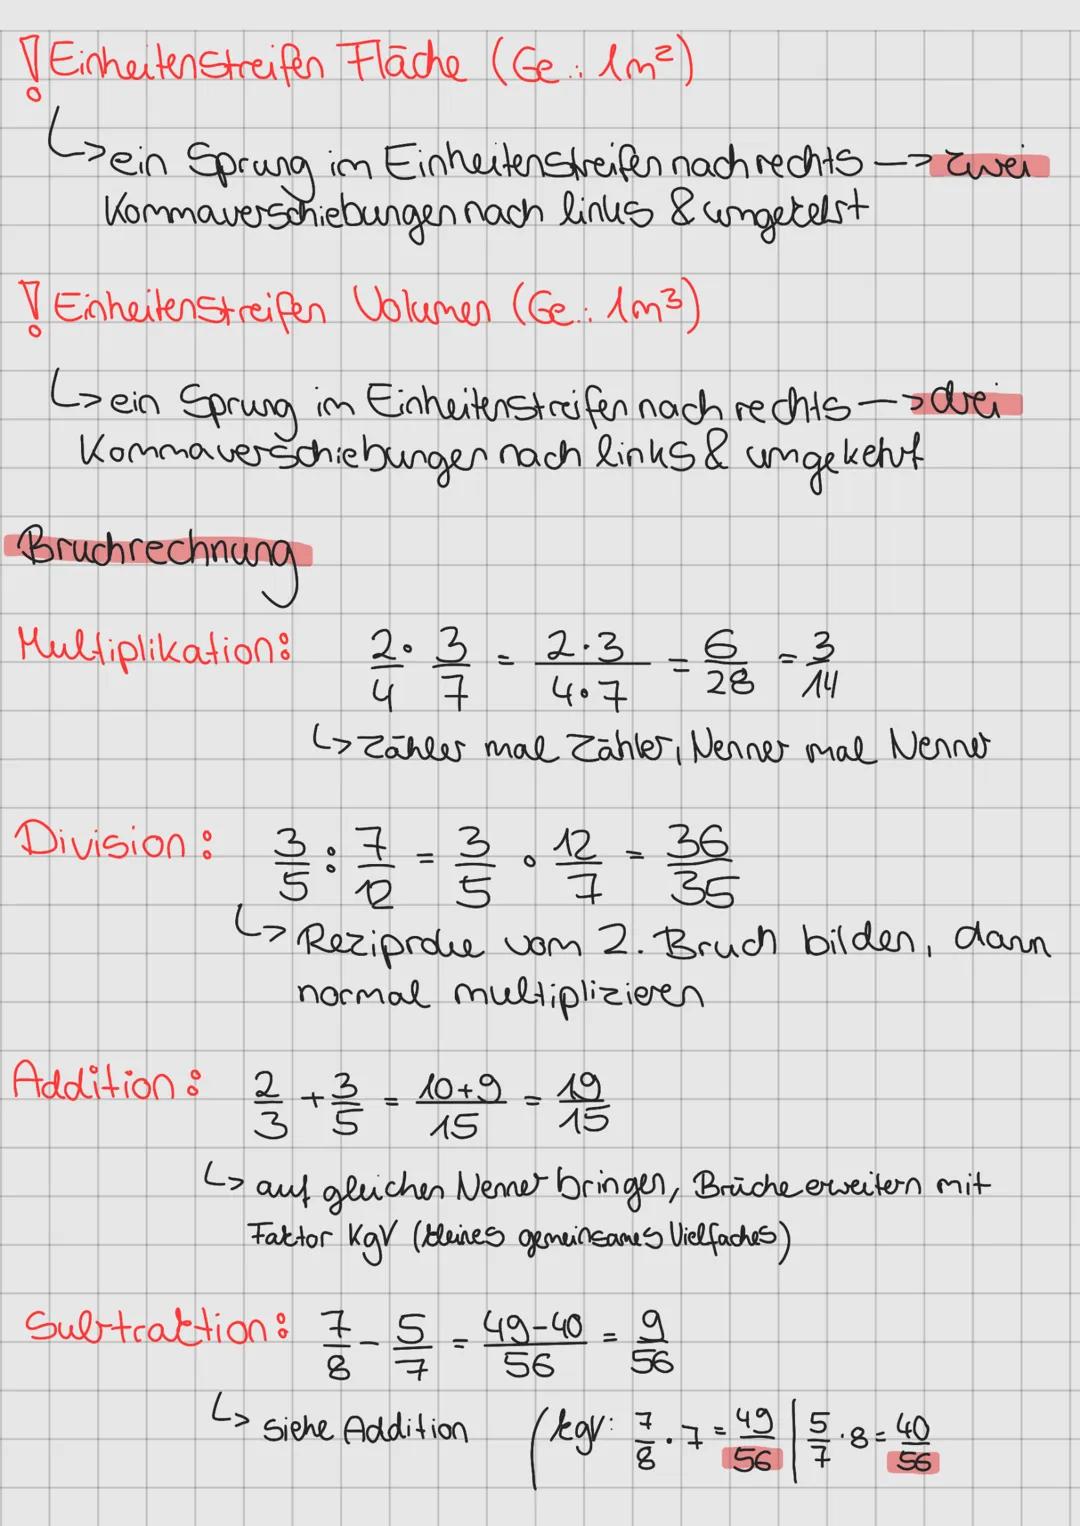 ! Einheitenstreifen Fläche (Ge.: 1m²)
↳ ein Sprung im Einheitenstreifen nach rechts → zwei
Kommaverschiebungen nach links & umgekehrt
! Einheitenstreifen Volumen (Ge.: 1m³)
↳ ein Sprung im Einheitenstreifen nach rechts → drei
Kommaverschiebungen nach links & umgekehrt
Bruchrechnung
Multiplikation: 2/4 · 3/7 = 2·3/4·7 = 6/28 = 3/14
↳ Zähler mal Zähler, Nenner mal Nenner
Division: 3/5 : 7/12 = 3/5 · 12/7 = 36/35
↳ Reziproke vom 2. Bruch bilden, dann
normal multiplizieren
Addition: 2/3 + 3/5 = 10+9/15 = 19/15
↳ auf gleichen Nenner bringen, Brüche erweitern mit
Faktor KgV (kleines gemeinsames Vielfaches)
Subtraktion: 7/8 - 5/7 = 49-40/56 = 9/56
↳ siehe Addition (kgV: 7/8 · 7 = 49/56 | 5/7 · 8 = 40/56